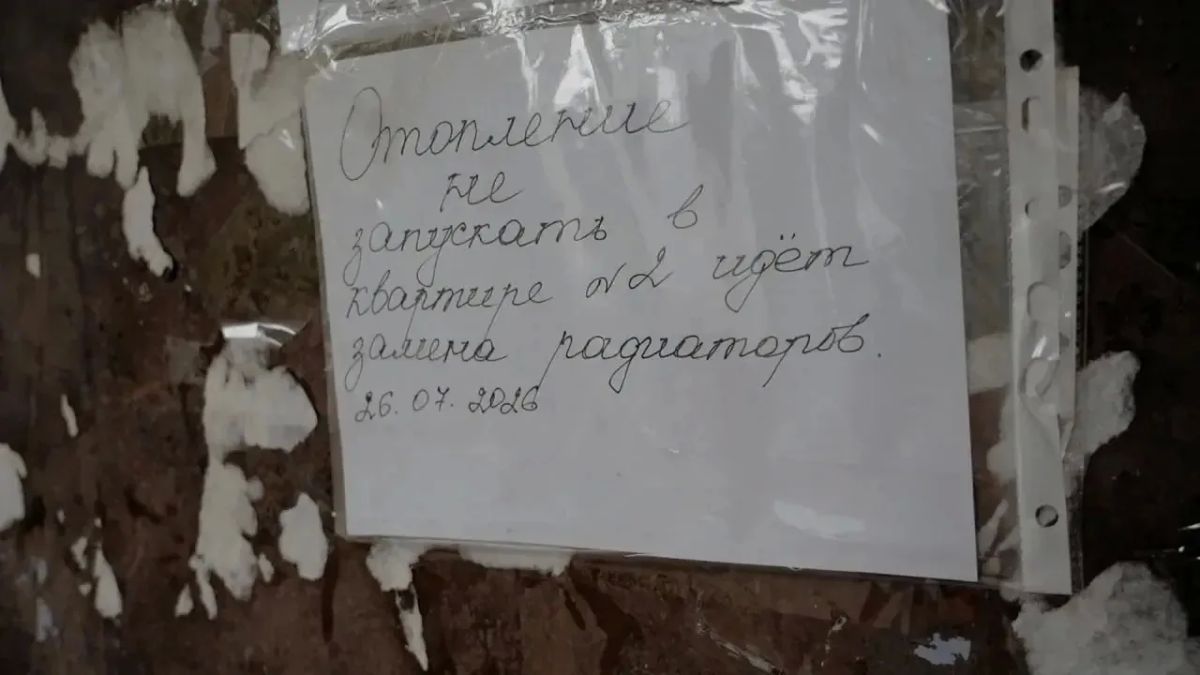 Отопление
не
запускать в
квартире №2 идёт
замена радиаторов.
26.07.2026